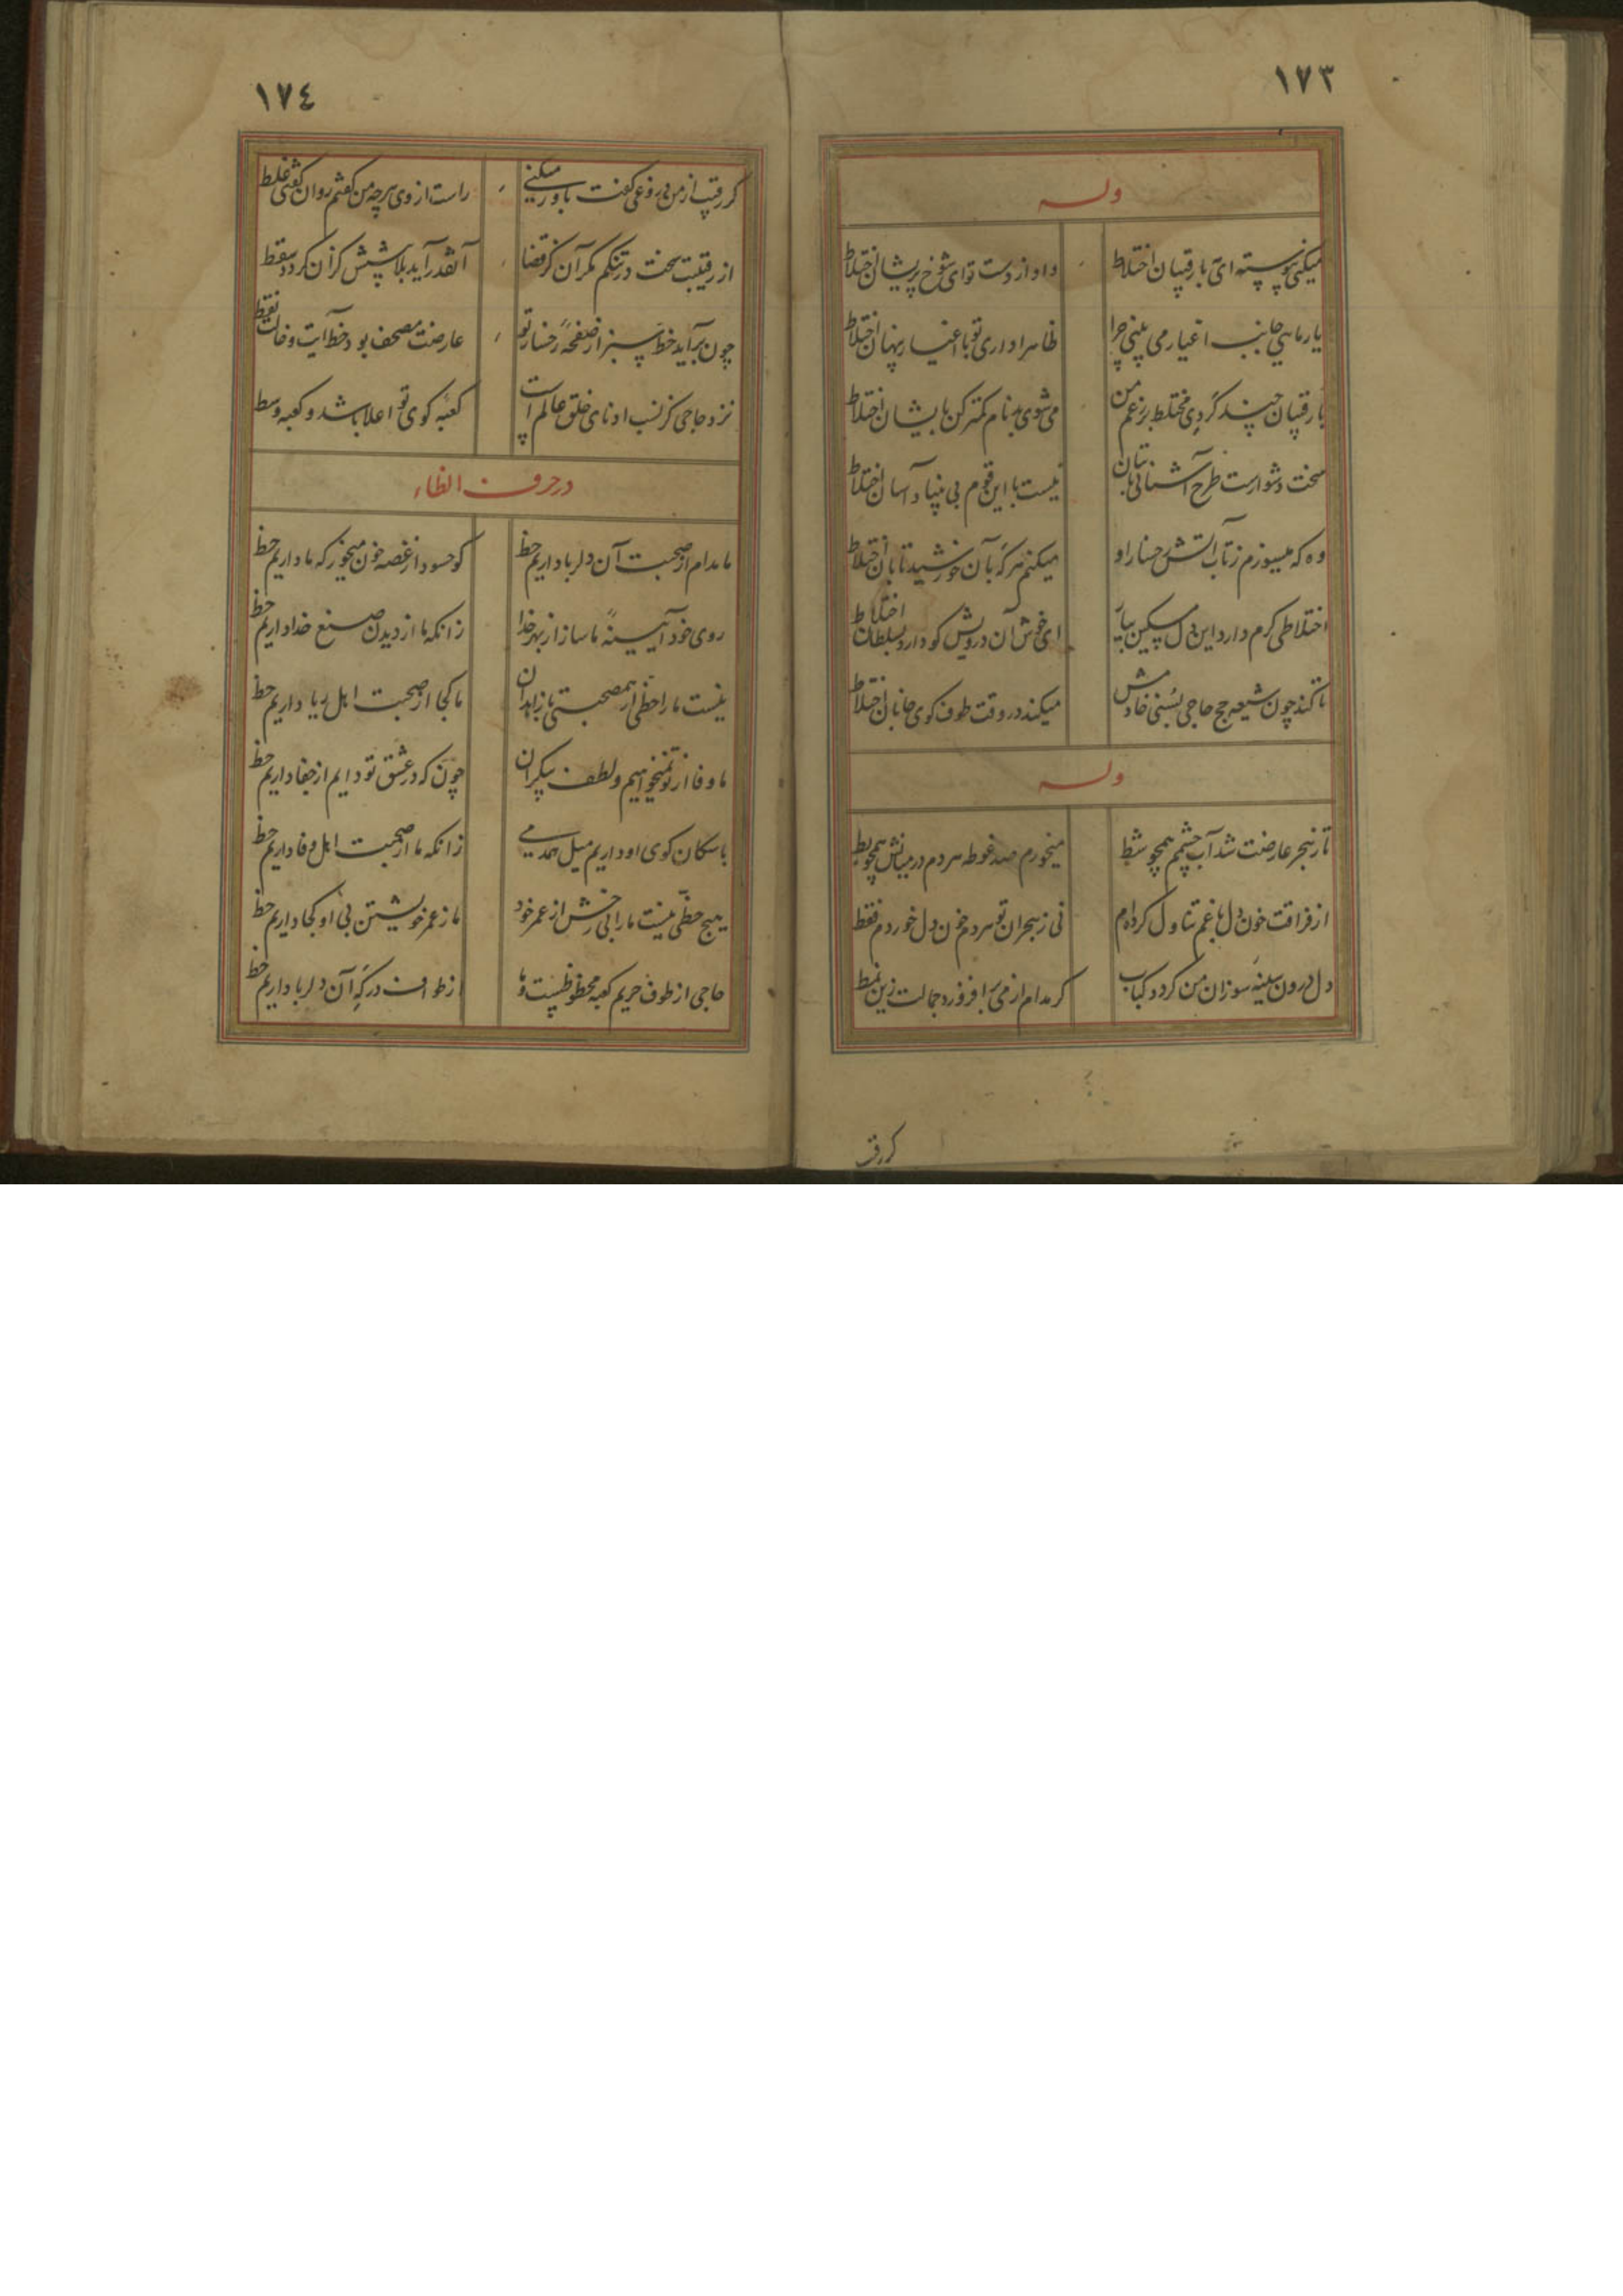 ١٧٣
وله
میکنی پیوسته ای با رقیبان اختلاط
داد از دست تو ای شوخ پریشان اختلاط
یار ما هی جانب اغیار می بینی چرا
ظاهرا داری تو با اغیار پنهان اختلاط
با رقیبان چند گردی مختلط بر زعم من
می شوی بدنام کمتر کن بایشان اختلاط
سخت دشوارست طرح آشنائی با بتان
نیست با این قوم بی بنیاد آسان اختلاط
وه که میسوزم ز تاب آتش رخسار او
میکنم هرگه بآن خورشید تابان اختلاط
اختلاطی گرم دارد این دل مسکین بیار
ای خوش آن درویش کو دارد بسلطان اختلاط
تا کند چون شیعه حج حاجی بسنی خادمش
میکند در وقت طوف کوی جانان اختلاط
وله
تا ز هجر عارضت شد آب چشمم همچو شط
میخورم صد غوطه هر دم در میانش همچو بط
از فراقت خون دل با غم تناول کرده ام
نی ز هجران تو هر دم خون دل خوردم فقط
دل درون سینه سوزان من گردد کباب
گر مدام از می برافروزد جمالت زین نمط
گر رقیب
١٧٤
گر رقیب از من دروغی گفت باور میکنی
راست از وی هرچه من گفتم روان گفتی غلط
از رقیبت سخت در تنگم مگر آن کز قضا
آنقدر آید بلا پیشش کز آن گردد سقط
چون برآید خط سبز از صفحهٔ رخسار تو
عارضت مصحف بود خط آیت و خالت نقط
نزد حاجی کز نسب ادنای خلق عالم است
کعبه کوی تو اعلا باشد و کعبه وسط
در حرف الظاء
ما مدام از صحبت آن دلربا داریم حظ
کو حسود از غصه خون میخور که ما داریم حظ
روی خود آیینهٔ ما ساز از بهر خدا
زانکه ما از دیدن صنع خدا داریم حظ
نیست ما را حظی از همصحبتی با زاهدان
ما کجا از صحبت اهل ریا داریم حظ
ما وفا از تو نمیخواهیم و لطف بیکران
چون که در عشق تو دایم از جفا داریم حظ
با سگان کوی او داریم میل همدمی
زانکه ما از صحبت اهل وفا داریم حظ
هیچ حظی نیست ما را بی رخش از عمر خود
ما ز عمر خویشتن بی او کجا داریم حظ
حاجی از طوف حریم کعبه محظوظست و ما
از طواف درگه آن دلربا داریم حظ